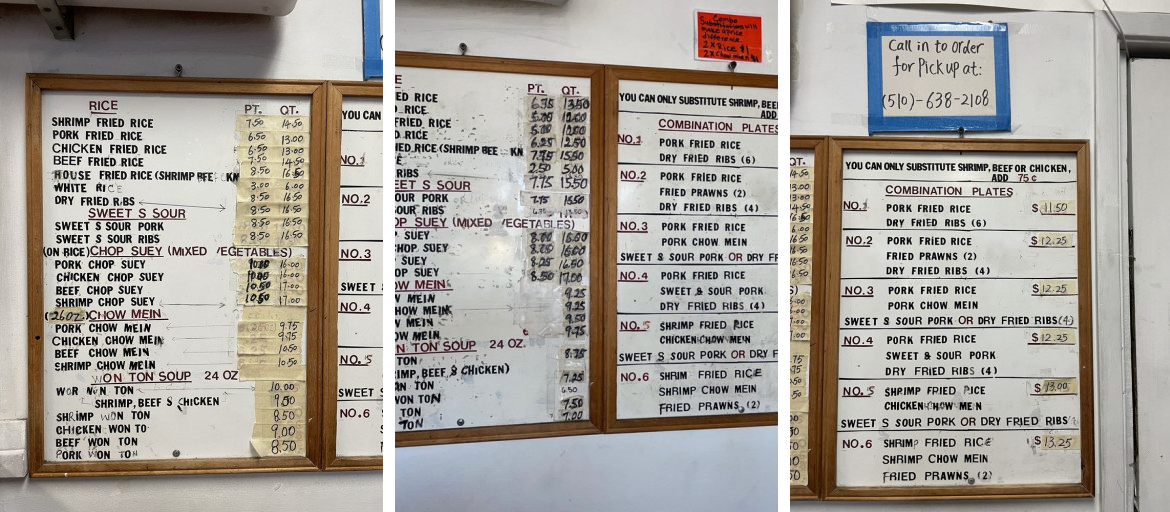 RICE PT. QT.
SHRIMP FRIED RICE 7.50 14.50
PORK FRIED RICE 6.50 13.00
CHICKEN FRIED RICE 6.50 13.00
BEEF FRIED RICE 7.50 14.50
HOUSE FRIED RICE (SHRIMP 8.50 16.50
WHITE RICE 3.00 6.00
DRY FRIED RIBS 8.50 16.50
SWEET S SOUR
SWEET S SOUR PORK 8.50 16.50
SWEET S SOUR RIBS 8.50 16.50
(ON RICE) CHOP SUEY (MIXED VEGETABLES)
PORK CHOP SUEY 16.00
CHICKEN CHOP SUEY 16.00
BEEF CHOP SUEY 10.50 17.00
SHRIMP CHOP SUEY 10.50 17.00
(26OZ.) CHOW MEIN
PORK CHOW MEIN 9.75
CHICKEN CHOW MEIN 9.75
BEEF CHOW MEIN 10.50
SHRIMP CHOW MEIN 10.50
WON TON SOUP 24 OZ
WOR WON TON 10.00
SHRIMP, BEEF & CHICKEN 9.50
SHRIMP WON TON 8.50
CHICKEN WON TO 9.00
BEEF WON TON
PORK WON TON 8.50
YOU CA
NO.1
NO.2
NO.3
SWEET S
NO.4
NO.5
SWEET S
NO.6
Combo
Substitutions will
make a price
difference
2 X Rice $1
2 X Chow mein $1
PT. QT.
FRIED RICE 6.75 13.50
RICE
FRIED RICE
FRIED RICE 6.25 12.50
FRIED RICE (SHRIMP 7.75 15.50
2.50 5.00
RIBS 7.75 15.50
EET S SOUR
SOUR PORK 7.75 15.50
SOUR RIBS
OP SUEY (MIXED VEGETABLES)
SUEY 8.00 16.00
CHOP SUEY 8.00 16.00
OP SUEY 8.25 16.50
CHOP SUEY 8.50 17.00
OW MEIN
W MEIN 9.25
CHOW MEIN 9.25
W MEIN 9.50
OW MEIN 9.75
N TON SOUP 24 OZ.
TON 8.75
IMP, BEEF, & CHICKEN)
N TON 7.25
WON TON 6.50
N TON 7.50
TON 7.00
YOU CAN ONLY SUBSTITUTE SHRIMP, BEE
ADD
COMBINATION PLATES
NO.1 PORK FRIED RICE
DRY FRIED RIBS (6)
NO.2 PORK FRIED RICE
FRIED PRAWNS (2)
DRY FRIED RIBS (4)
NO.3 PORK FRIED RICE
PORK CHOW MEIN
SWEET & SOUR PORK OR DRY FR
NO.4 PORK FRIED RICE
SWEET & SOUR PORK
DRY FRIED RIBS (4)
NO.5 SHRIMP FRIED RICE
CHICKEN CHOW MEIN
SWEET S SOUR PORK OR DRY F
NO.6 SHRIM FRIED RICE
SHRIMP CHOW MEIN
FRIED PRAWNS (2)
Call in to order
for Pickup at:
(510)-638-2108
YOU CAN ONLY SUBSTITUTE SHRIMP, BEEF OR CHICKEN,
ADD 75¢
COMBINATION PLATES
NO.1 PORK FRIED RICE $11.50
DRY FRIED RIBS (6)
NO.2 PORK FRIED RICE $12.25
FRIED PRAWNS (2)
DRY FRIED RIBS (4)
NO.3 PORK FRIED RICE $12.25
PORK CHOW MEIN
SWEET S SOUR PORK OR DRY FRIED RIBS (4)
NO.4 PORK FRIED RICE $12.25
SWEET & SOUR PORK
DRY FRIED RIBS (4)
NO.5 SHRIMP FRIED RICE $13.00
CHICKEN CHOW MEIN
SWEET S SOUR PORK OR DRY FRIED RIBS
NO.6 SHRIMP FRIED RICE $13.25
SHRIMP CHOW MEIN
FRIED PRAWNS (2)